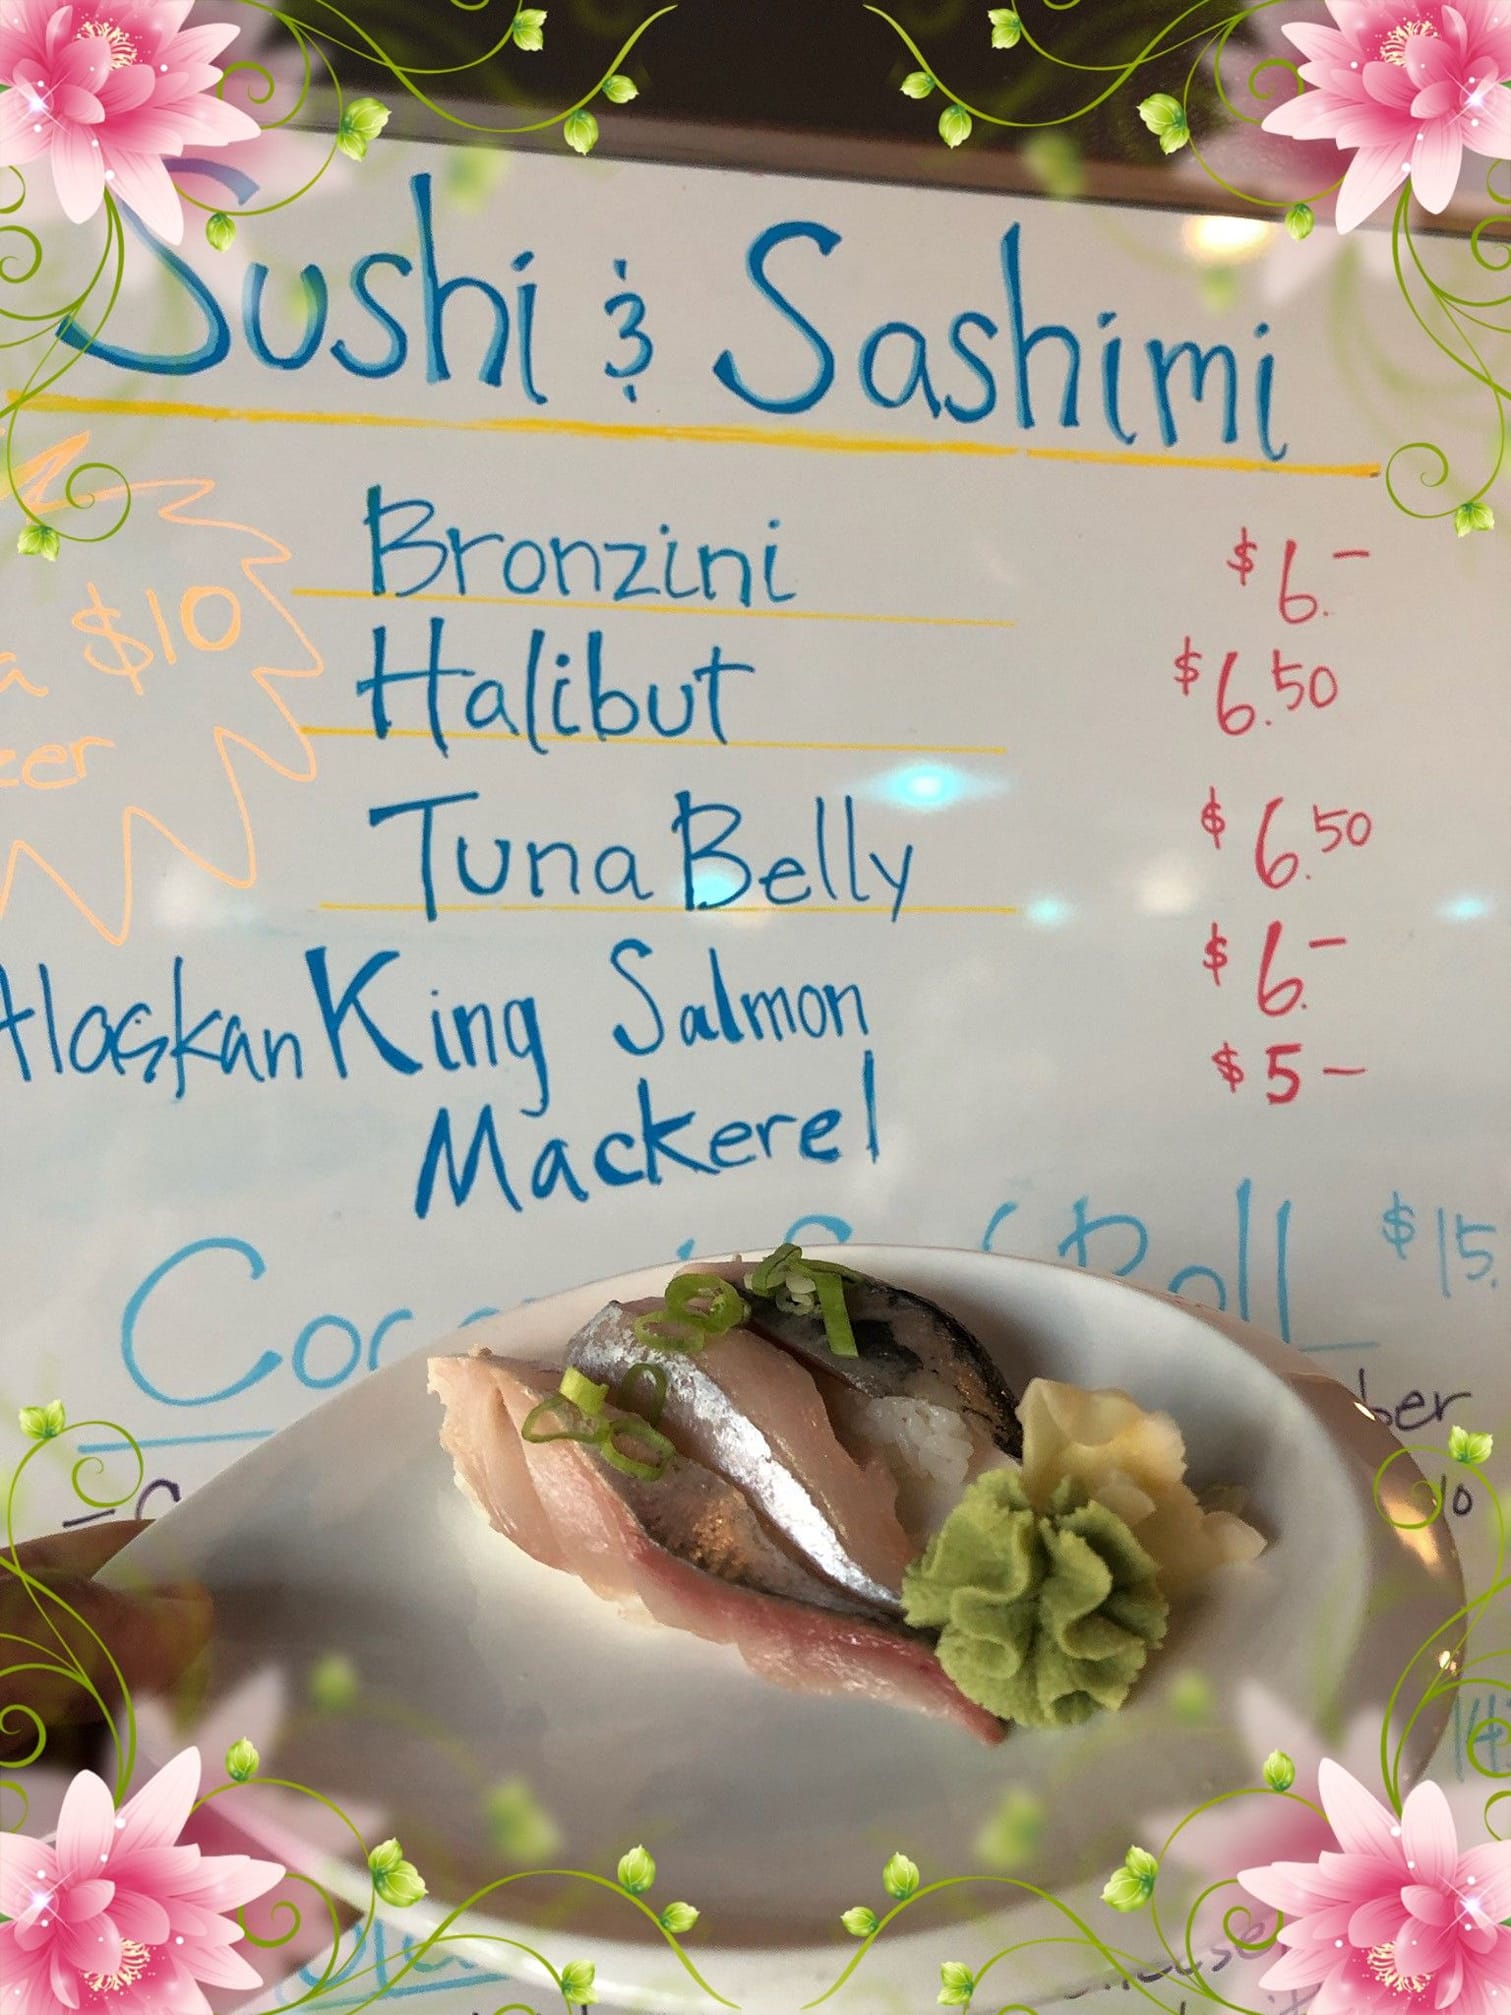 Sushi & Sashimi
Bronzini $6.-
$10
Halibut $6.50
Tuna Belly $6.50
Alaskan King Salmon $6.-
Mackerel $5-
Roll $15.